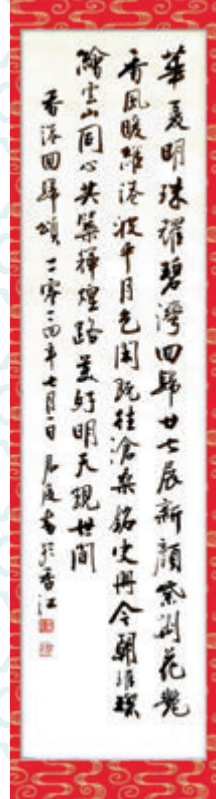 華夏明珠耀碧灣回歸廿七展新顏紫荊花艷
香風暖維港波平月色閑既往滄桑銘史冊今朝璀璨
繪雲山同心共築輝煌路美好明天現世間
香港回歸頌 二零二四年七月一日 書於香江